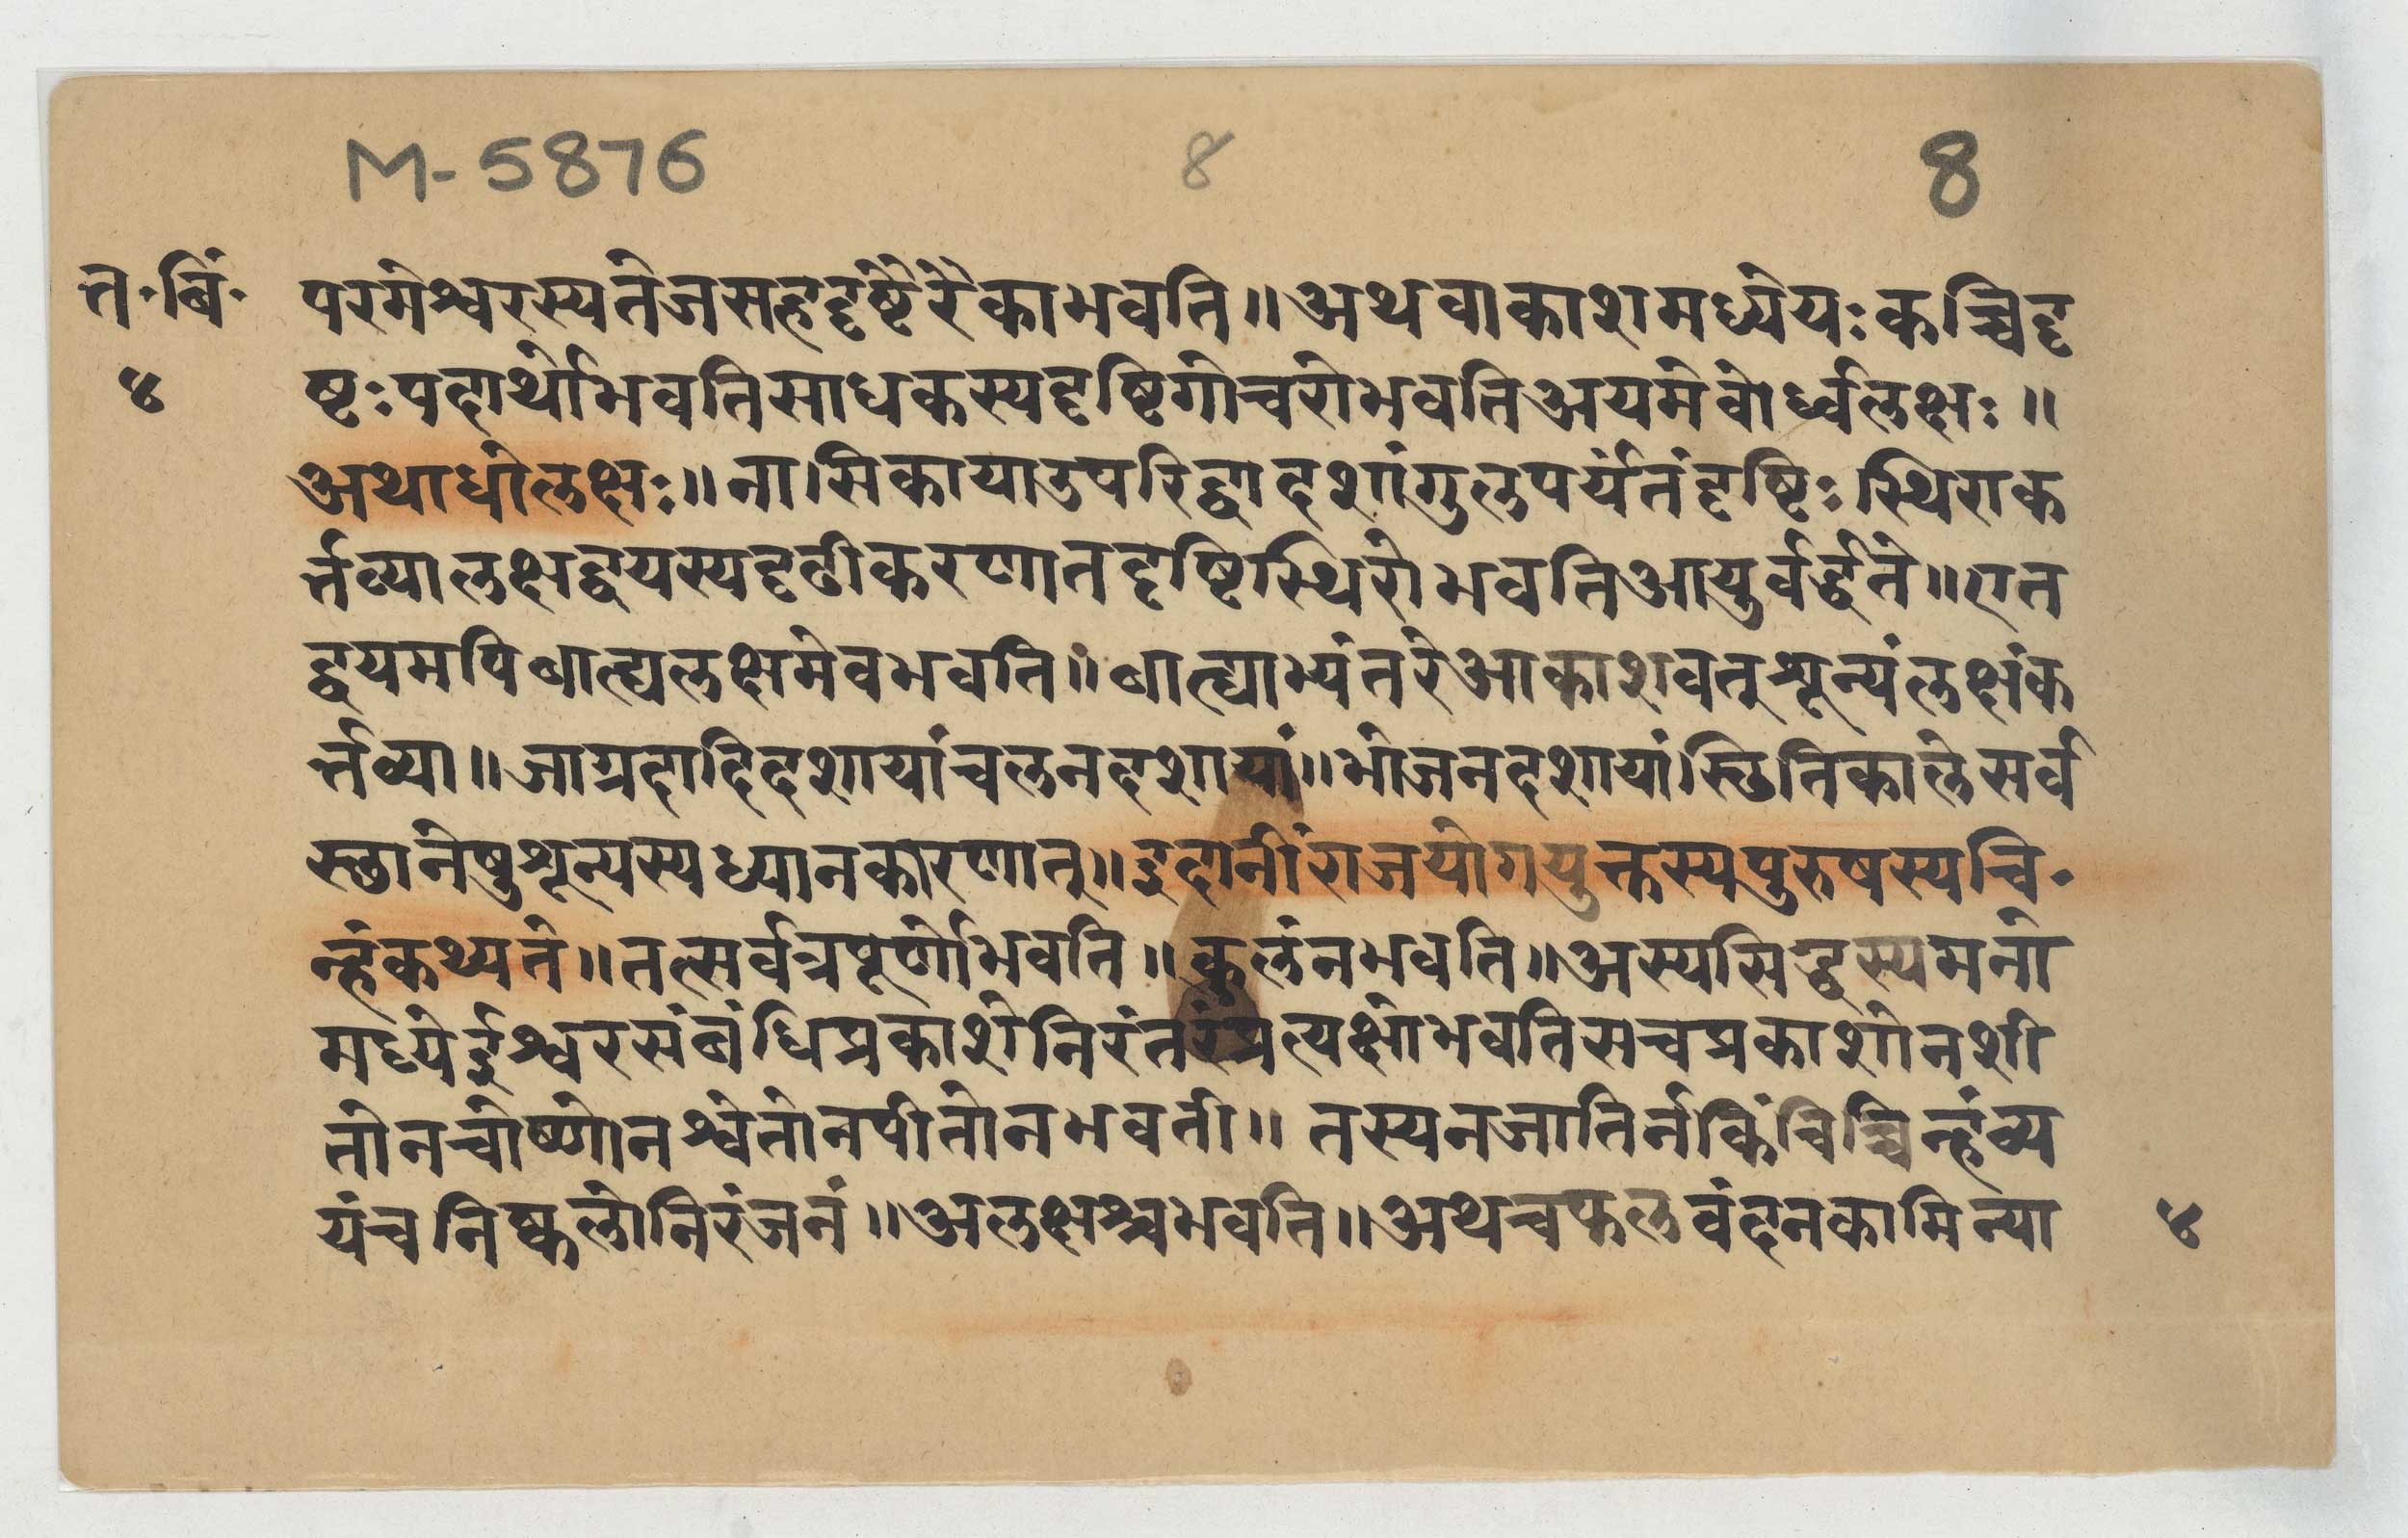 M-5876 8 8
त॰बिं॰ परमेश्वरस्यतेजसहदृष्टैरैकाभवति॥अथवाकाशमध्येयःकच्चिदृ
४ ष्टःपदार्थोभवतिसाधकस्यदृष्टिगोचरोभवतिअयमेवोर्ध्वलक्षः॥
अथाधोलक्षः॥नासिकायाउपरिद्वादशांगुलपर्यंतंदृष्टिःस्थिराक
र्त्तव्यालक्षद्वयस्यदृढीकरणातदृष्टिस्थिरोभवतिआयुर्वर्द्धते॥एत
द्वयमपिबाह्यलक्षमेवभवति॥बाह्याभ्यंतरेआकाशवत्शून्यंलक्षंक
र्त्तव्या॥जाग्रदादिदशायांचलनदशायां॥भोजनदशायांस्छितिकालेसर्व
स्छानेषुशून्यस्यध्यानकारणात्॥इदानींराजयोगयुक्तस्यपुरुषस्यचि॰
न्हंकथ्यते॥तत्सर्वत्रपूर्णोभवति॥कुलंनभवति॥अस्यसिद्धस्यमनो
मध्येईश्वरसंबंधिप्रकाशेनिरंतरंप्रत्यक्षोभवतिसचप्रकाशोनशी
तोनचोष्णोनश्वेतोनपीतोनभवती॥ तस्यनजातिर्नकिंचिच्चिन्हंव्य
यंचनिष्कलोनिरंजनं॥अलक्षश्चभवति॥अथचफलवंदनकामिन्या ४